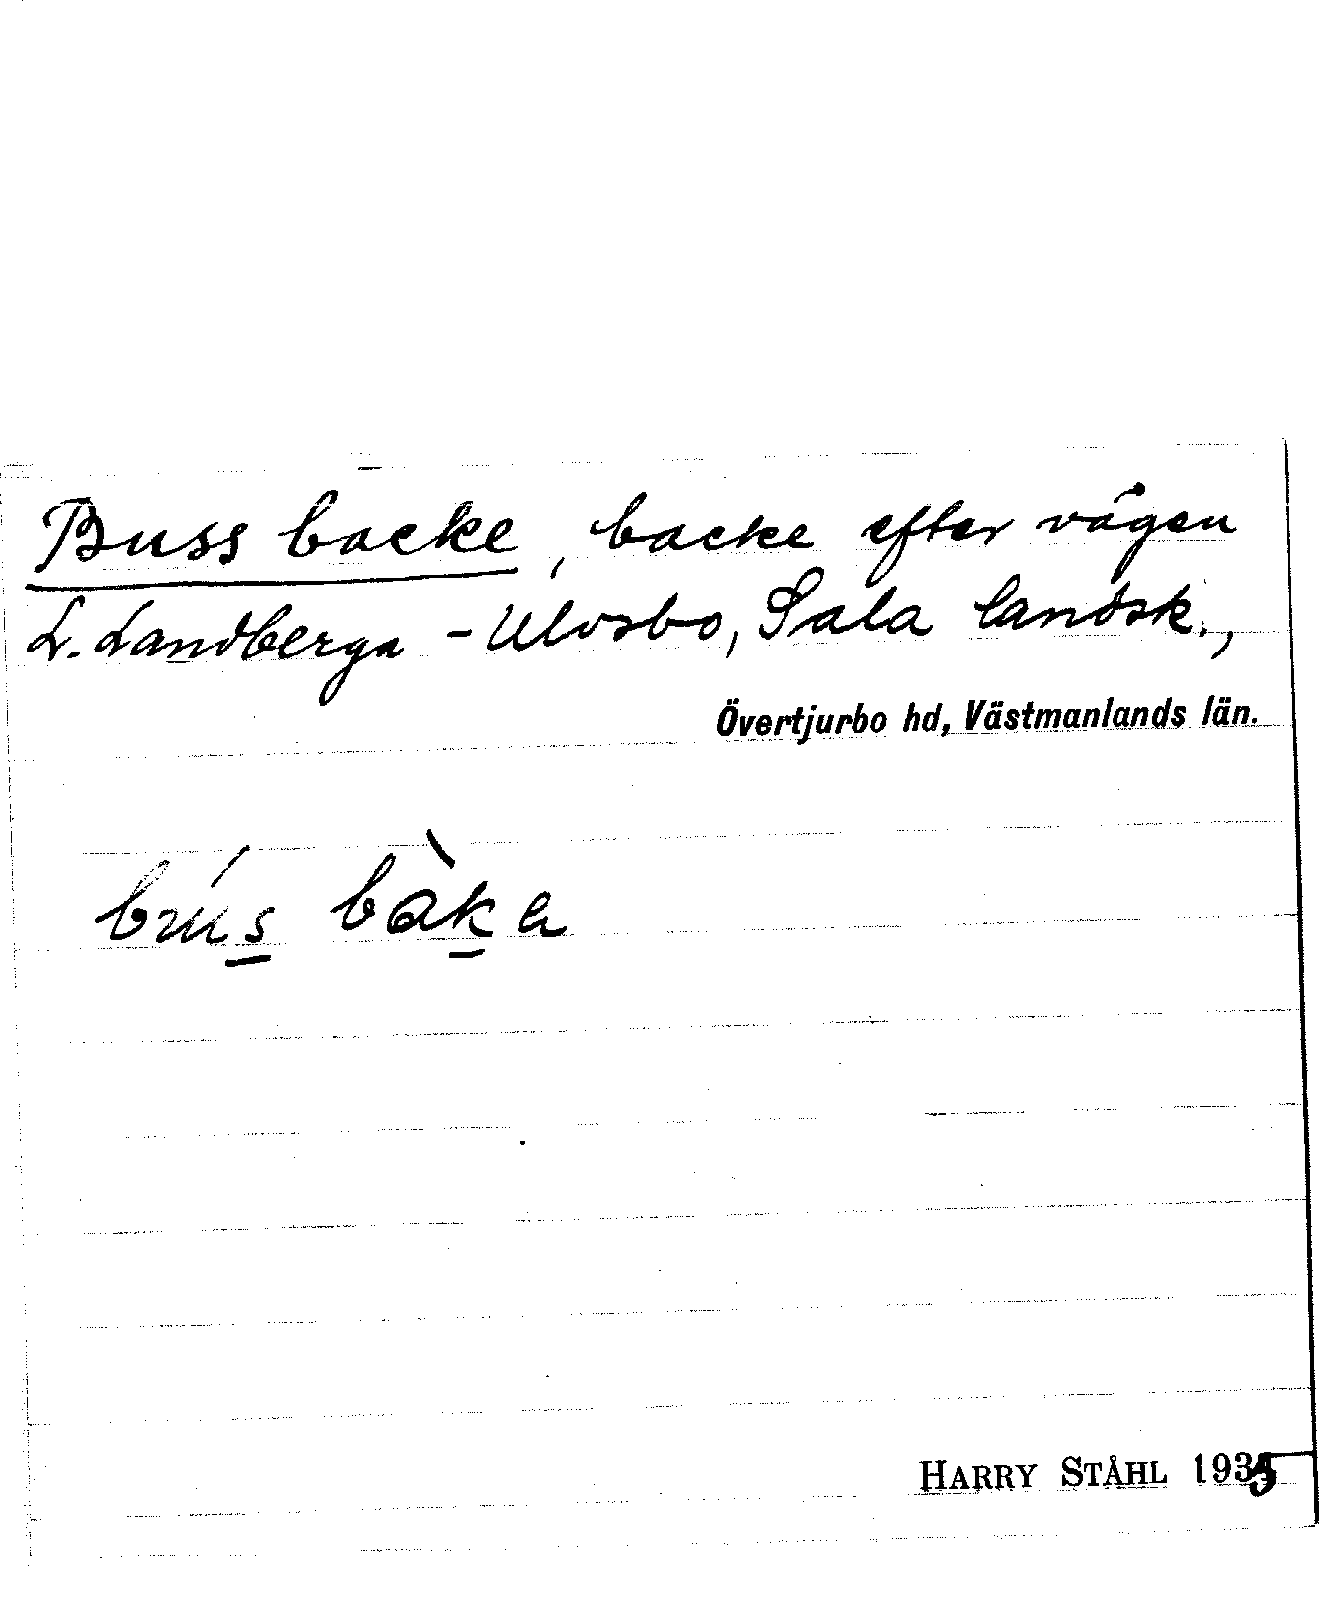 Buss backe, backe efter vägen
L. Landberga - Ulvsbo, Sala landsk.,
Övertjurbo hd, Västmanlands län.
bus bàka
HARRY STÅHL 1935